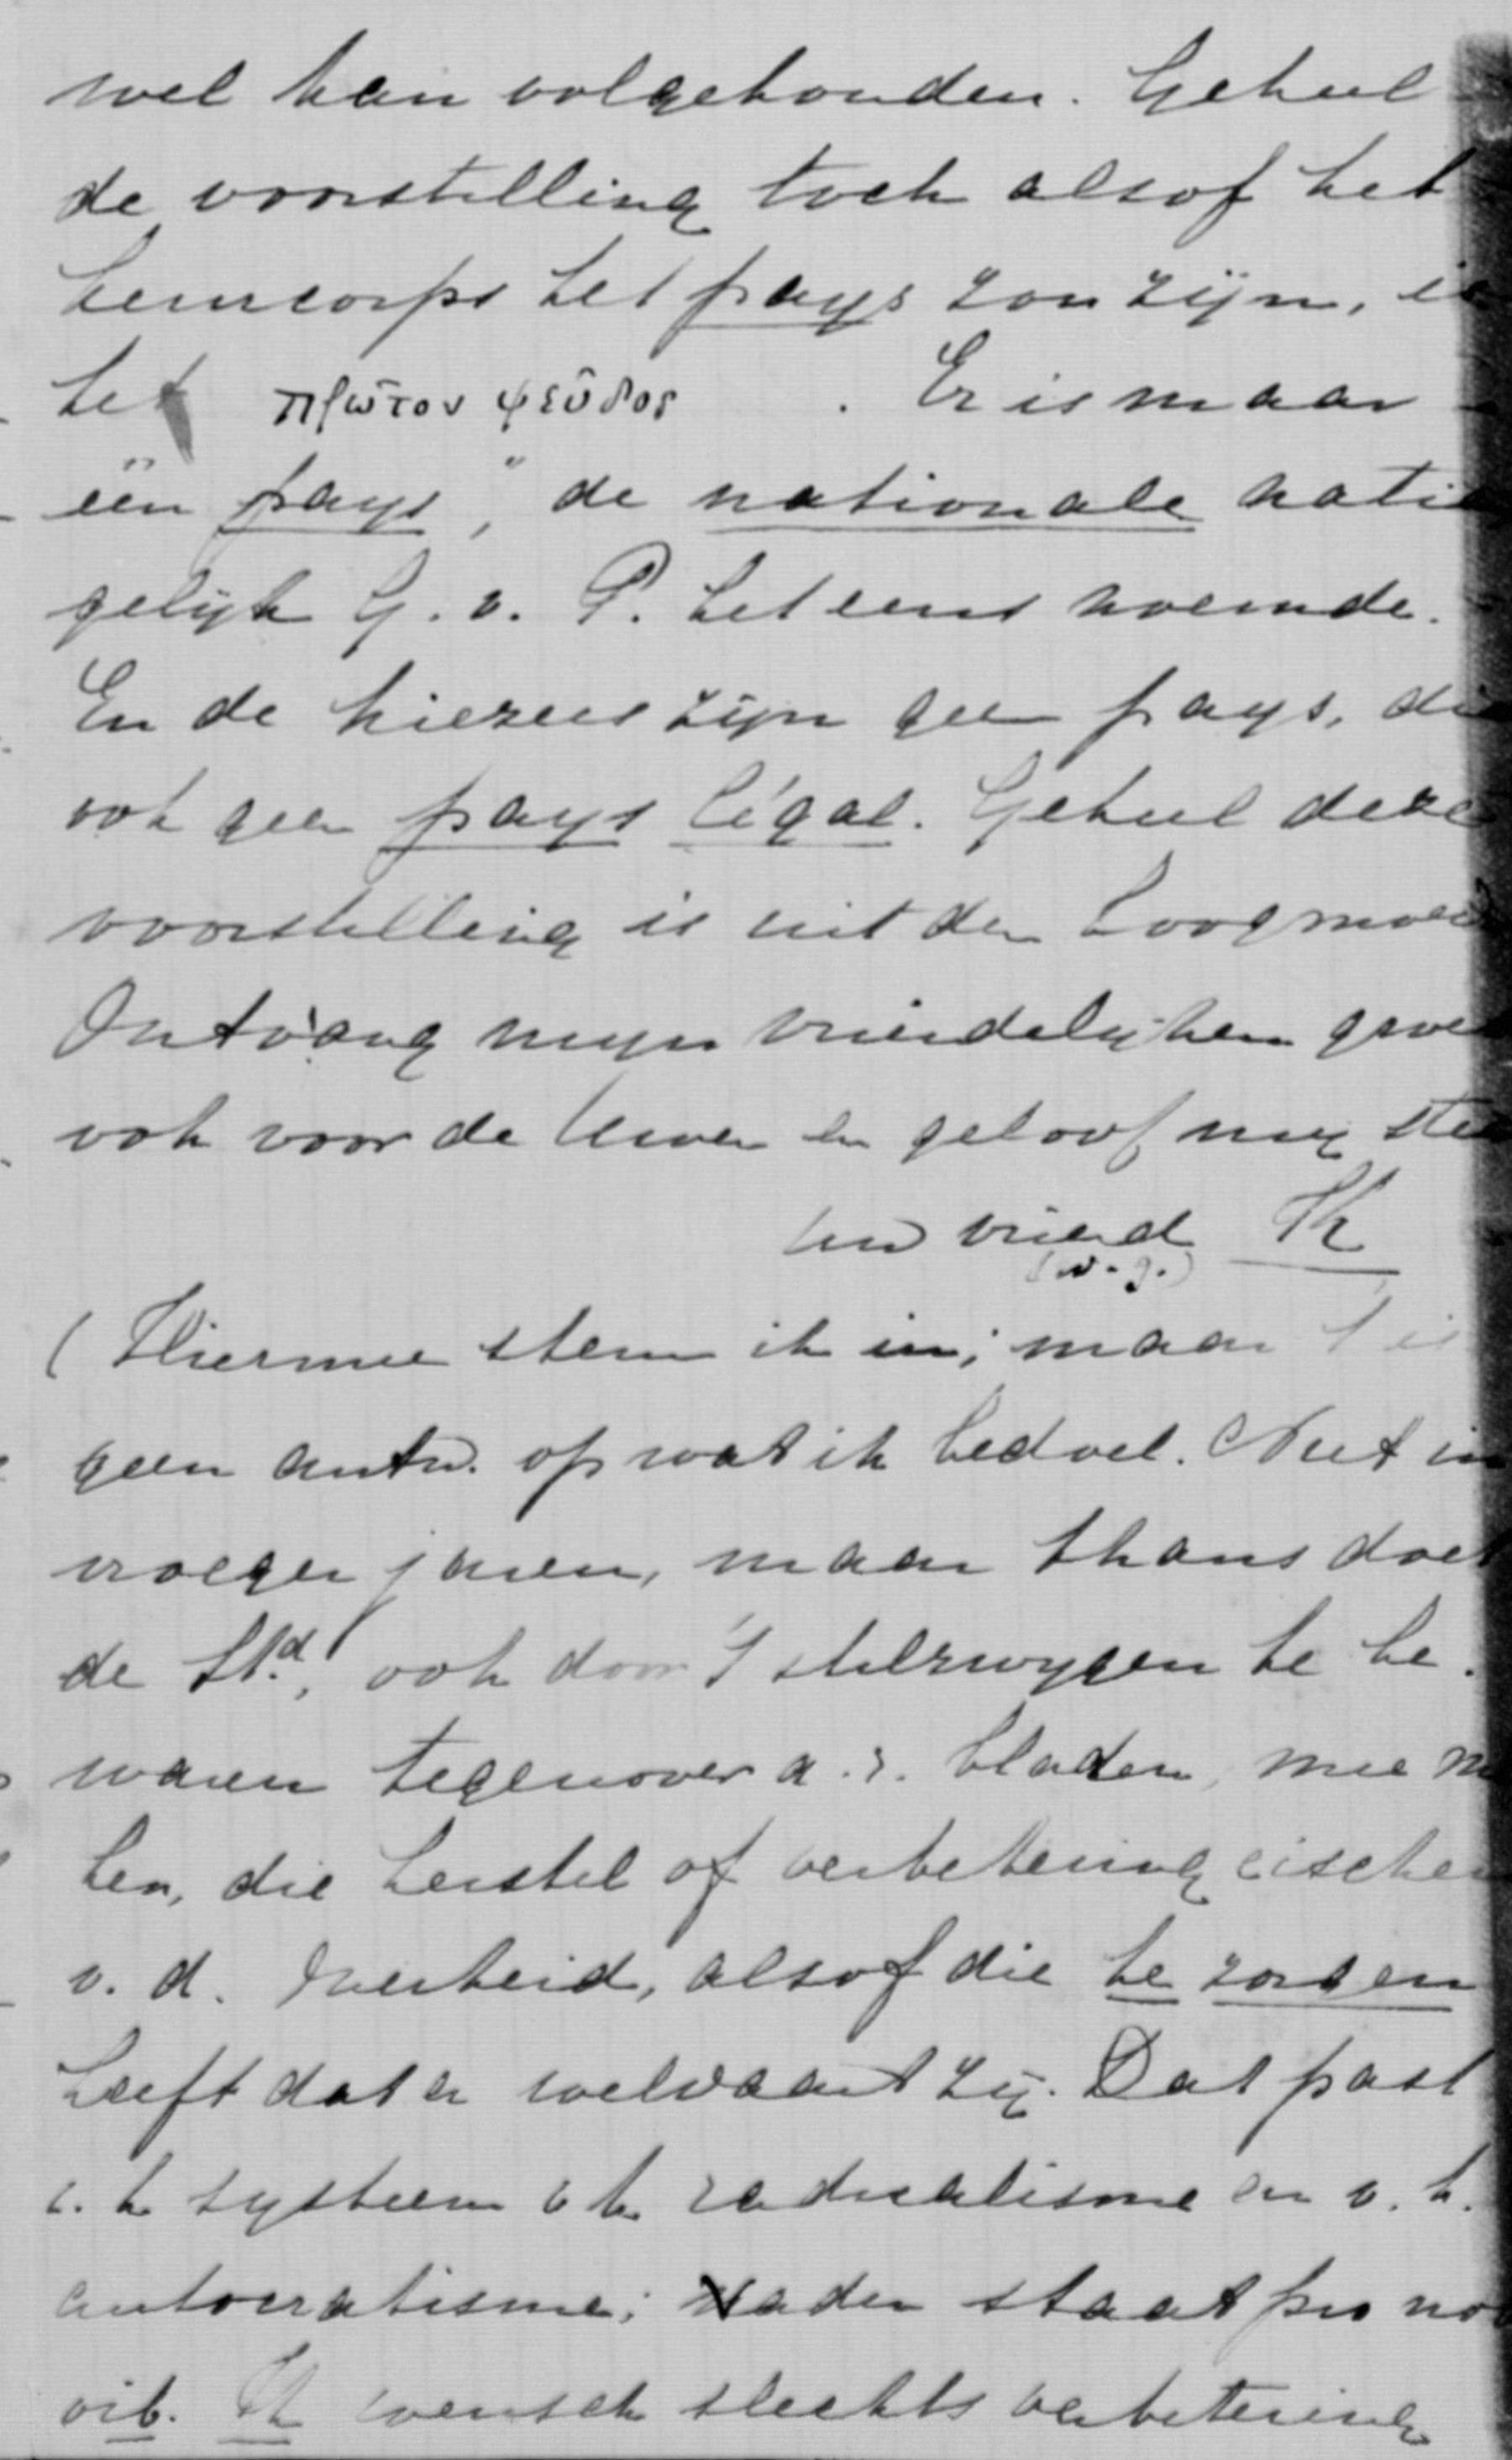 wel kan volgehouden. Geheel
de voorstelling toch alsof het
kiescorps het pays zou zijn, is
het πρῶτον ψεῦδος. Er is maar
één "pays", de nationale natie
gelijk G. v. P. het eens noemde.
En de kiezers zijn geen pays, dus
ook geen pays légal. Geheel deze
voorstelling is uit den hoogmoed
Ontvang mijn vriendelijken groet
ook voor de Uwen en geloof mij steeds
Uw vriend K
(w.g.)
(Hiermee stem ik in; maar 't is
geen antw. op wat ik bedoel. Niet in
vroeger jaren, maar thans doet
de Std, ook door 't stilzwijgen te be-
waren tegenover a.r. bladen, mee met
hen, die herstel of verbetering eischen
v. d. Overheid, alsof die te zorgen
heeft dat er welvaart zij. Dat past
i. h. systeem v h radicalisme en v. h.
autocratisme; vader staat pro
vib. Ik wensch slechts verbetering